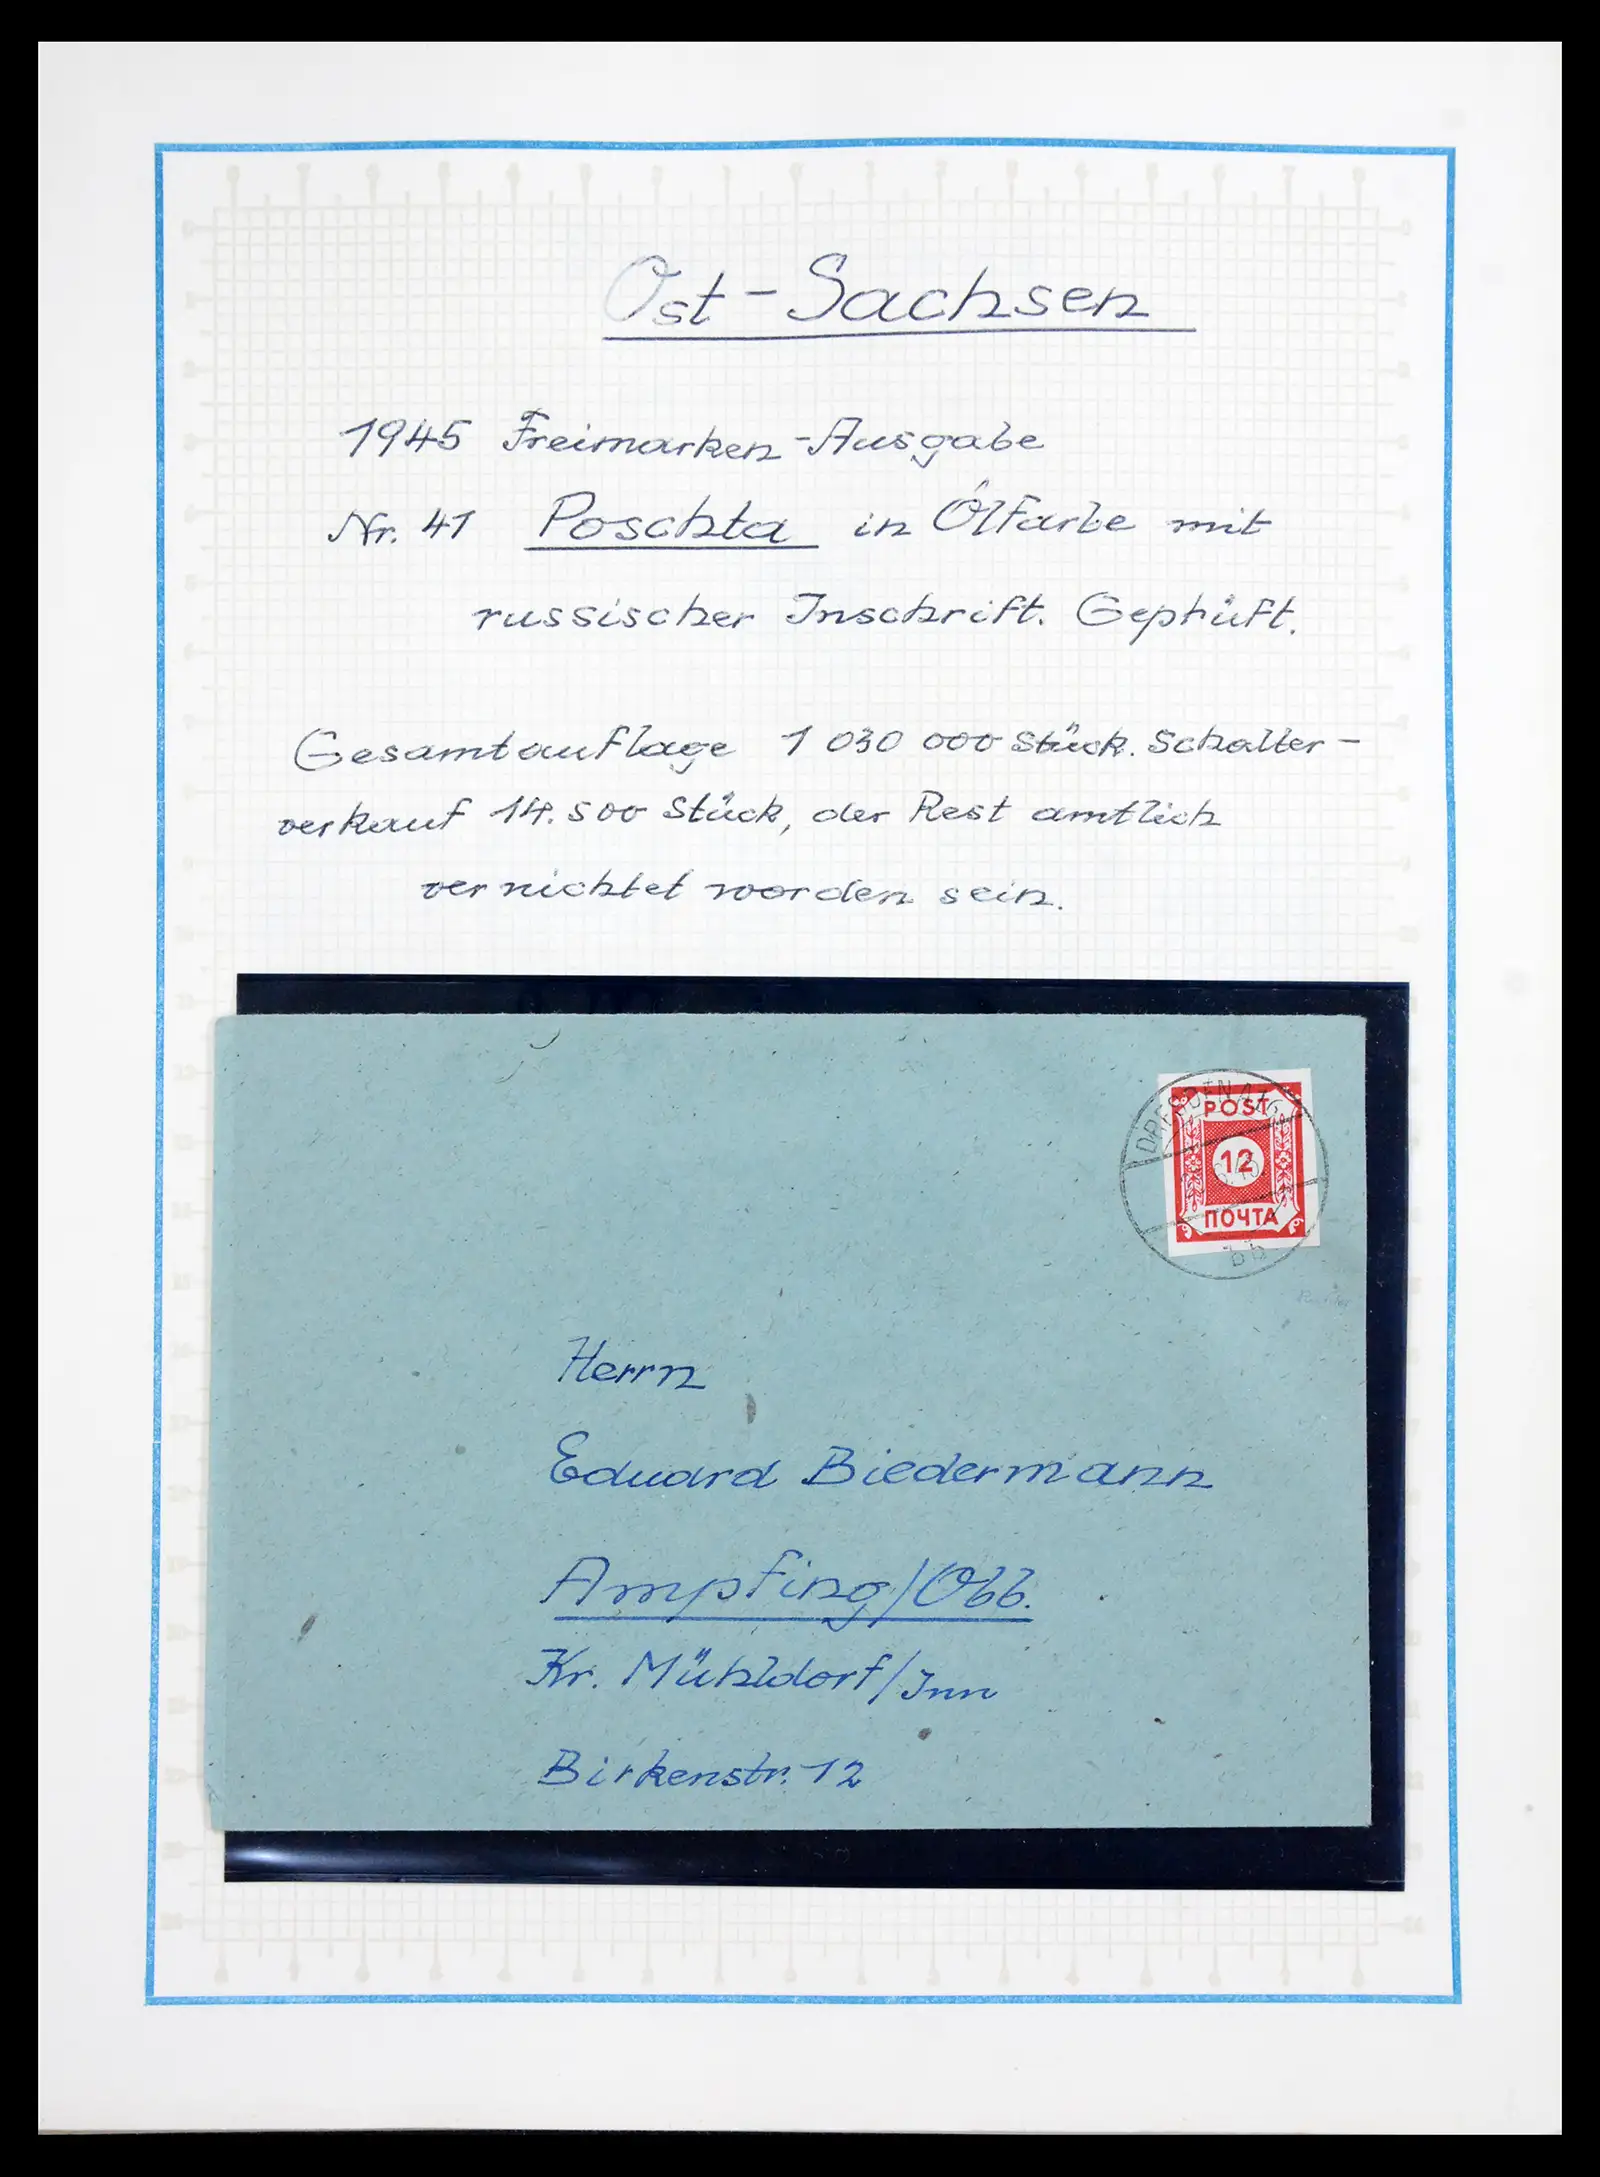 Ost-Sachsen
1945 Freimarken-Ausgabe
Nr. 41 Poschta in Ölfarbe mit
russischer Inschrift. Geprüft.
Gesamtauflage 1 030 000 Stück. Schalter-
verkauf 14.500 Stück, der Rest amtlich
vernichtet worden sein.
DRESDEN A 16
POST
12
ПОЧТА
bb
Herrn
Eduard Biedermann
Ampfing/Obb.
Kr. Mühldorf/Inn
Birkenstr. 12